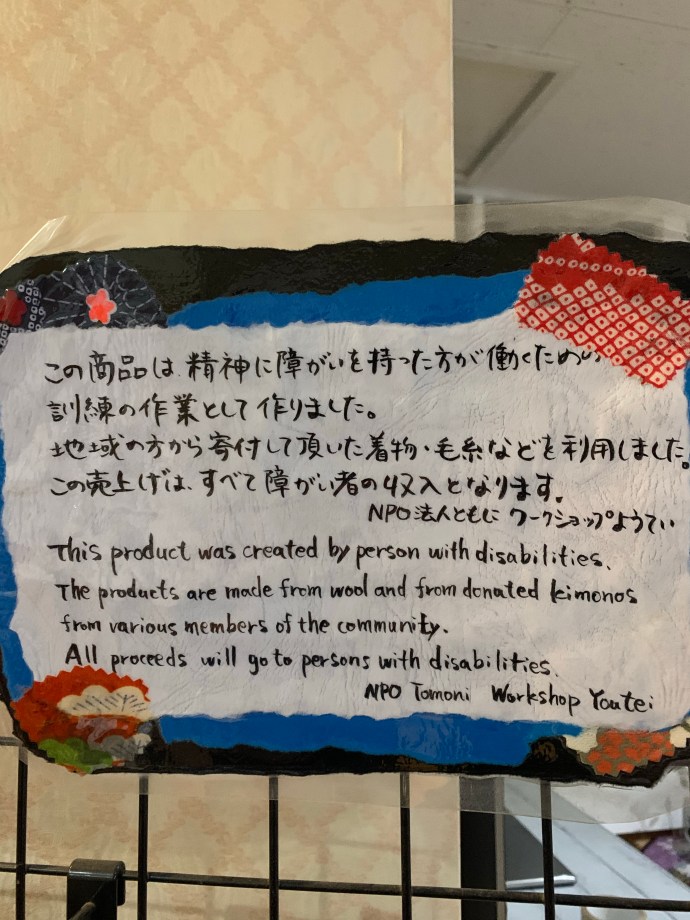 この商品は、精神に障がいを持った方が働くための
訓練の作業として作りました。
地域の方から寄付して頂いた着物・毛糸などを利用しました。
この売上げは、すべて障がい者の収入となります。
NPO法人ともに ワークショップようてい
This product was created by person with disabilities.
The products are made from wool and from donated kimonos
from various members of the community.
All proceeds will go to persons with disabilities.
NPO Tomoni Workshop Youtei